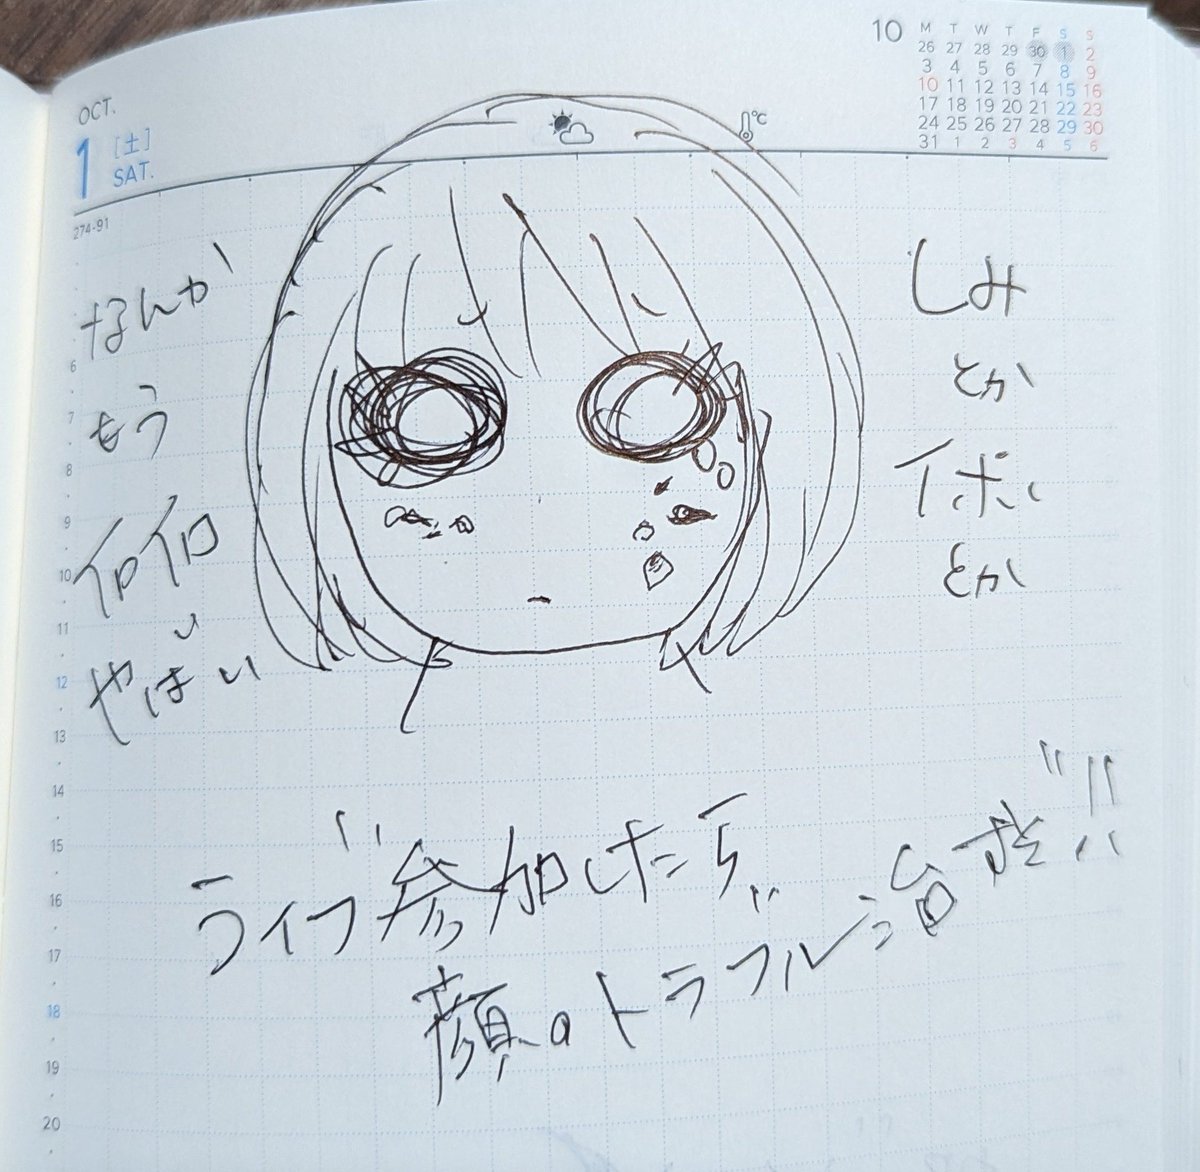 10
M T W T F S S
26 27 28 29 30 1 2
3 4 5 6 7 8 9
10 11 12 13 14 15 16
17 18 19 20 21 22 23
24 25 26 27 28 29 30
31 1 2 3 4 5 6
OCT.
1 [土]
SAT.
℃
274-91
なんか
もう
イロイロ
やばい
しみ
とか
イボ
とか
ライブ参加したら
顔のトラブル治せ!!
6
7
8
9
10
11
12
13
14
15
16
17
18
19
20